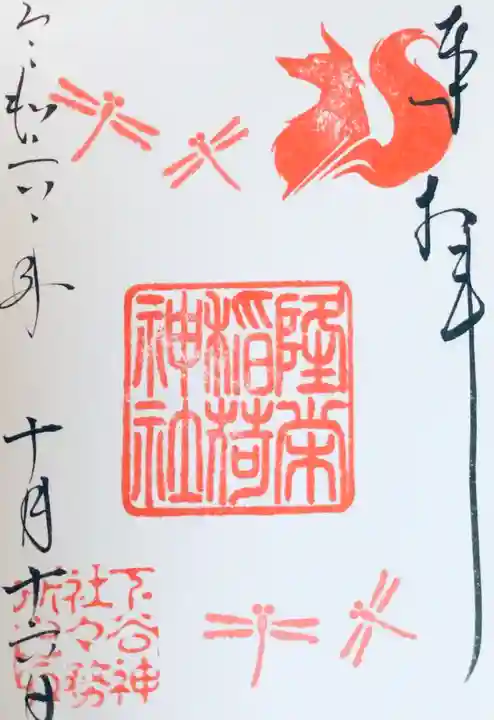 奉拝
隆栄
稲荷
神社
令和六年 十月十六日
下谷神
社々務
所之印